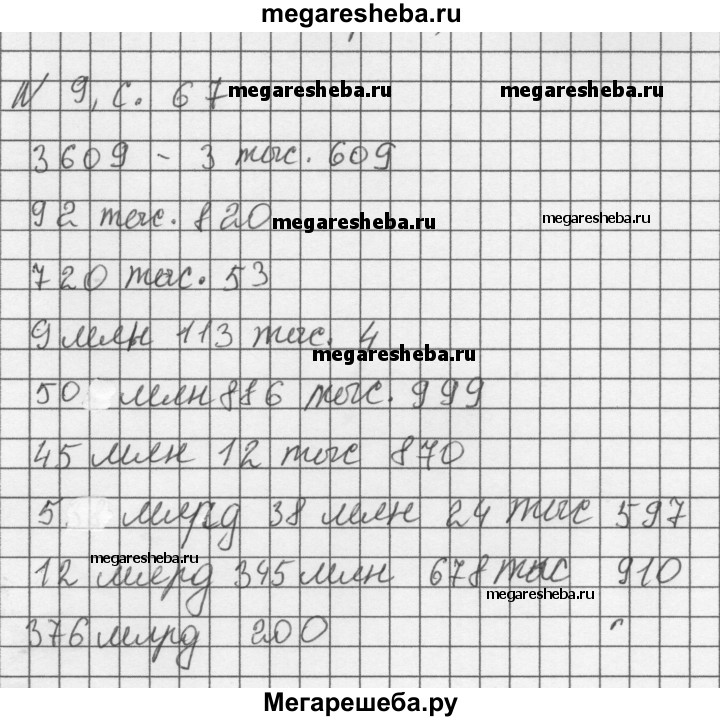 megaresheba.ru
N 9, с. 67 megaresheba.ru megaresheba.ru
3609 - 3 тыс. 609
92 тыс. 820 megaresheba.ru megaresheba.ru
720 тыс. 53
9 млн 113 тыс. 4
megaresheba.ru
50 млн 886 тыс. 999
45 млн 12 тыс 870
5 млрд 38 млн 24 тыс 597
megaresheba.ru
12 млрд 345 млн 678 тыс 910
megaresheba.ru
376 млрд 200
Мегарешеба.ру